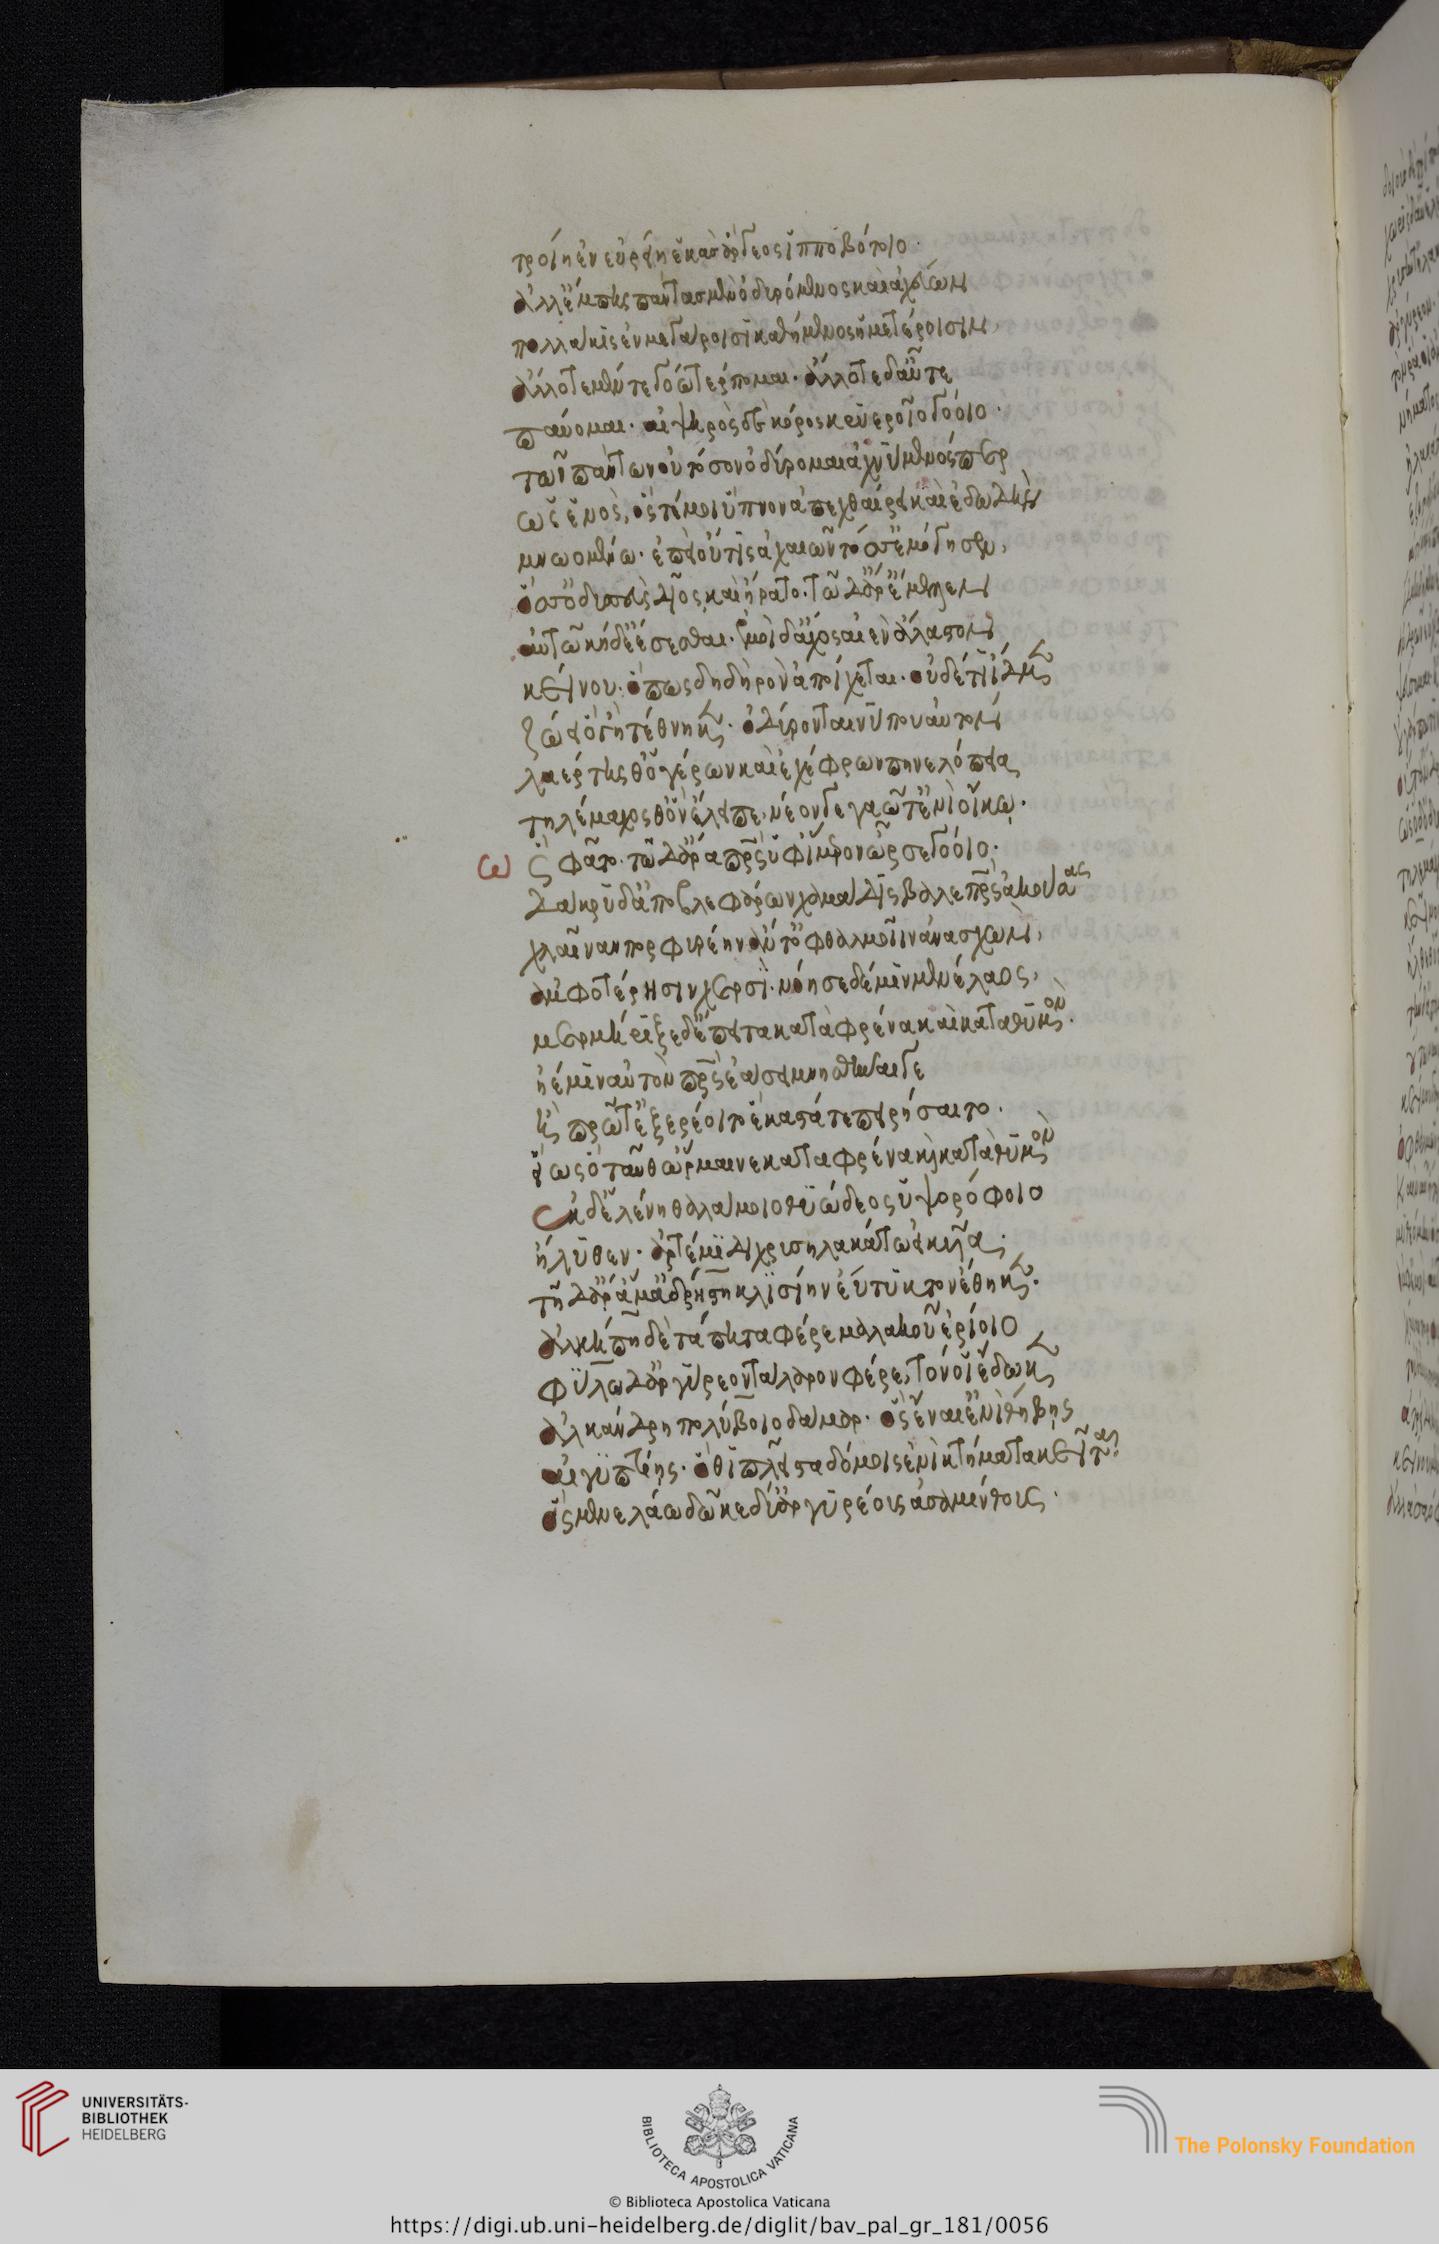 τροίη ἐν εὐρείη ἑκὰς ἄργεος ἱπποβότοιο·
ἀλλ' ἔμπης πάντας μὲν ὀδυρόμενος καὶ ἀχεύων
πολλάκις ἐν μεγάροισι καθήμενος ἡμετέροισιν,
ἄλλοτε μέν τε γόω τέρπομαι· ἄλλοτε δ' αὖτε
παύομαι· αἰψηρὸς δὲ κόρος κρυεροῖο γόοιο·
τῶν πάντων οὐ τόσον ὀδύρομαι ἀχνύμενός περ
ὡς ἑνὸς, ὅς τέ μοι ὕπνον ἀπεχθαίρει καὶ ἐδωδὴν
μνωομένω· ἐπεὶ οὔτις ἀχαιῶν τόσ' ἐμόγησεν,
ὅσ' ὀδυσεὺς ἐμόγησε καὶ ἤρατο· τῶ δ' ἄρ' ἔμελλεν
αὐτῶ κήδε' ἔσεσθαι· ἐμοὶ δ' ἄχος αἰὲν ἄλαστον
κείνου· ὅπως δὴ δηρὸν ἀποίχεται· οὐδέ τι ἴδμεν
ζώει ὅγ' ἢ τέθνηκεν· ὀδύρονταί νύ που αὐτὸν
λαέρτης θ' ὁ γέρων καὶ ἐχέφρων πηνελόπεια
τηλέμαχός θ' ὃν ἔλειπε, νέον γεγαῶτ' ἐνὶ οἴκω·
ὣς φάτο· τῶ δ' ἄρα πρὸς ὑφ' ἵμερον ὦρσε γόοιο·
δάκρυ δ' ἀπὸ βλεφάρων χαμάδις βάλε πρὸς ἀκούσας
χλαῖναν πορφυρέην ἄντ' ὀφθαλμοῖιν ἀνασχὼν,
ἀμφοτέρησιν χερσί· νόησε δέ μιν μενέλαος,
μερμήριξε δ' ἔπειτα κατὰ φρένα καὶ κατὰ θυμὸν·
ἠέ μιν αὐτὸν πρὸς ἑὰ σαμνησθῆναι
ἦ πρῶτ' ἐξερέοιτο ἕκαστά τε πειρήσαιτο·
εἵως ὁ ταῦθ' ὥρμαινε κατὰ φρένα καὶ κατὰ θυμὸν
ἐκ δ' ἑλένη θαλάμοιο θυώδεος ὑψορόφοιο
ἤλυθεν· ἀρτέμιδι χρυσηλακάτω εἰκυῖα·
τῆ δ' ἄρ' ἅμ' ἀδρήστη κλισίην εὔτυκτον ἔθηκεν·
ἀλκίππη δὲ τάπητα φέρε μαλακοῦ ἐρίοιο
φυλὼ δ' ἀργύρεον τάλαρον φέρε, τόν οἱ ἔδωκεν
ἀλκάνδρη πολύβοιο δάμαρ· ὃς ἔναι' ἐνὶ θήβης
αἰγυπτίης· ὅθι πλεῖστα δόμοις ἐνὶ κτήματα κεῖται·
ὃς μενελάω δῶκε δύ' ἀργυρέοις ἀσαμίνθους·
UNIVERSITÄTS-
BIBLIOTHEK
HEIDELBERG
BIBLIOTECA APOSTOLICA VATICANA
The Polonsky Foundation
© Biblioteca Apostolica Vaticana
https://digi.ub.uni-heidelberg.de/diglit/bav_pal_gr_181/0056